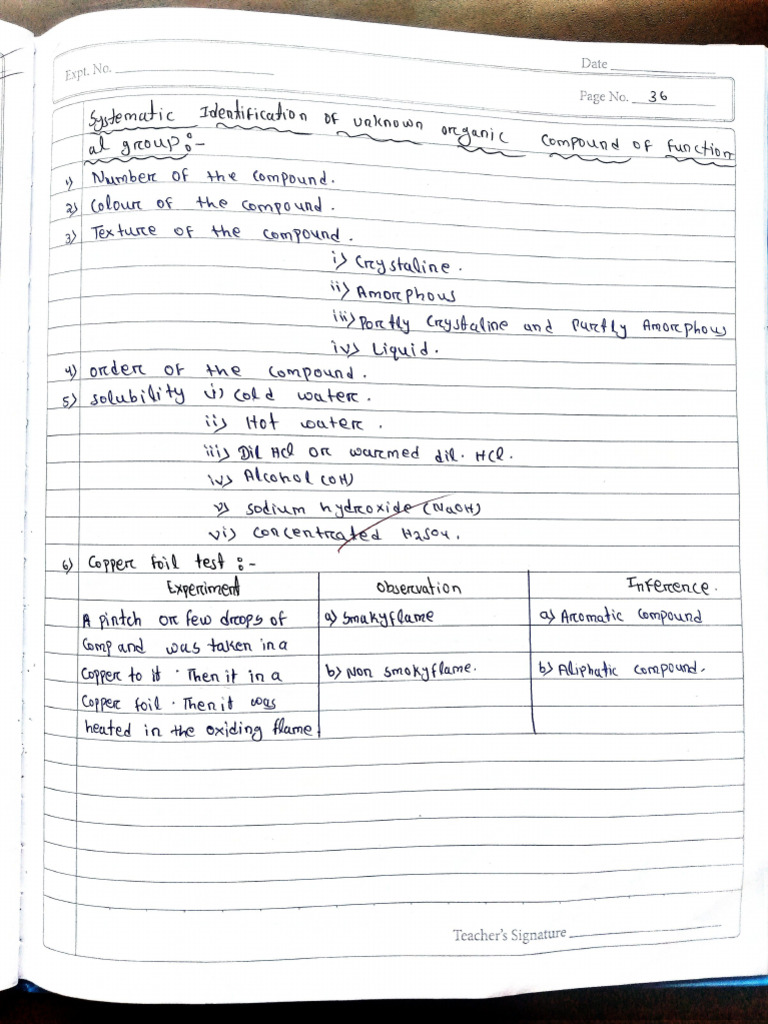 Expt. No.
Date
Page No. 36
Systematic Identification of unknown organic compound of function
al group:-
1) Number of the compound.
2) Colour of the compound.
3) Texture of the compound.
i) Crystaline.
ii) Amorphous
iii) Partly Crystaline and Partly Amorphous
iv) Liquid.
4) order of the compound.
5) solubility i) cold water.
ii) Hot water.
iii) Dil HCl or warmed dil. HCl.
iv) Alcohol (OH)
v) sodium hydroxide (NaOH)
vi) concentrated H2SO4.
6) Copper foil test :-
Experiment Observation Inference.
A pintch or few drops of a) Smakyflame a) Aromatic compound
Comp and was taken in a
Copper to it. Then it in a b) Non smokyflame. b) Aliphatic compound.
Copper foil. Then it was
heated in the oxiding flame
Teacher's Signature